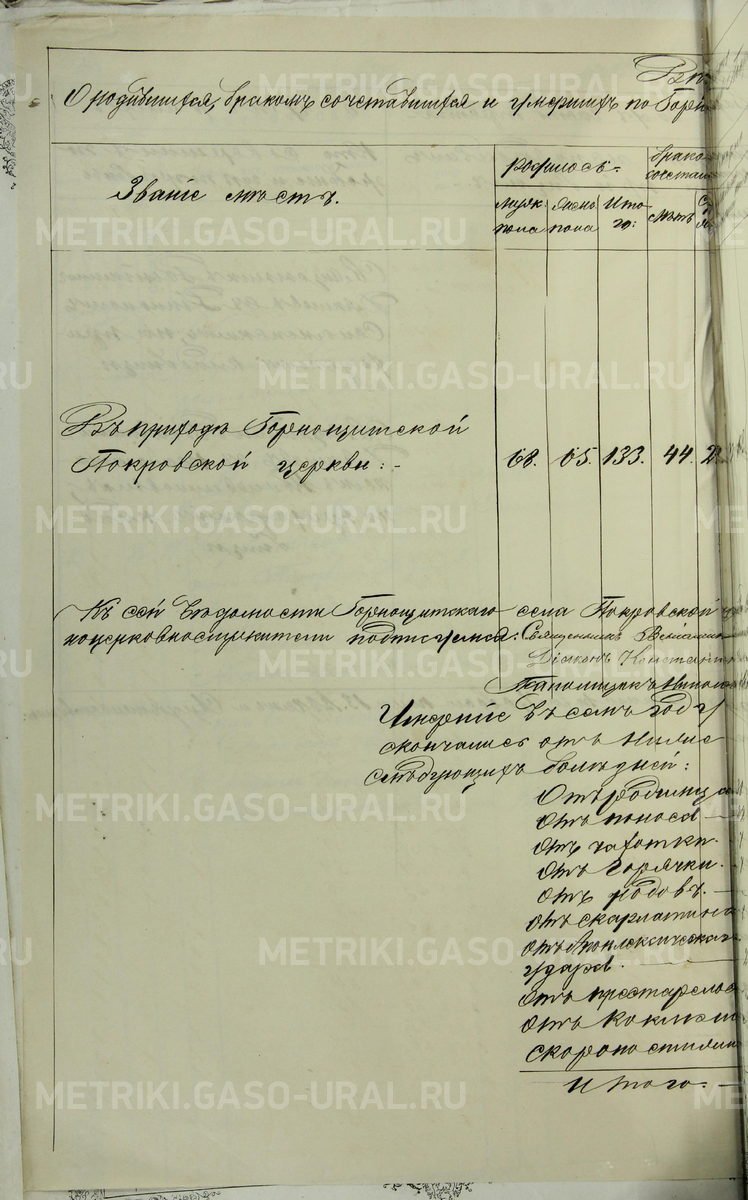 О родившихся, бракомъ сочетавшихся и умершихъ по Горно
Званіе мѣстъ.
родилось.
брако
сочета
Муж
пола
Женс
пола
Ито
го:
лѣтъ
Въ приходѣ Горнощитской
Покровской церкви: -
68. 65. 133. 44. 2
Къ сей вѣдомости Горнощитскаго села Покровской
подписуемся: Священникъ
Діаконъ Константи
Псаломщикъ Никола
Умершіе въ семъ году
скончались отъ ниже
слѣдующихъ болѣзней:
Отъ родимца
отъ поноса
отъ чахотки.
отъ горячки.
отъ родовъ.
отъ скарлатина
отъ Апоплексическаг
удара.
отъ престарѣлос
отъ коклюш
скоропостижн
итого.
METRIKI.GASO-URAL.RU